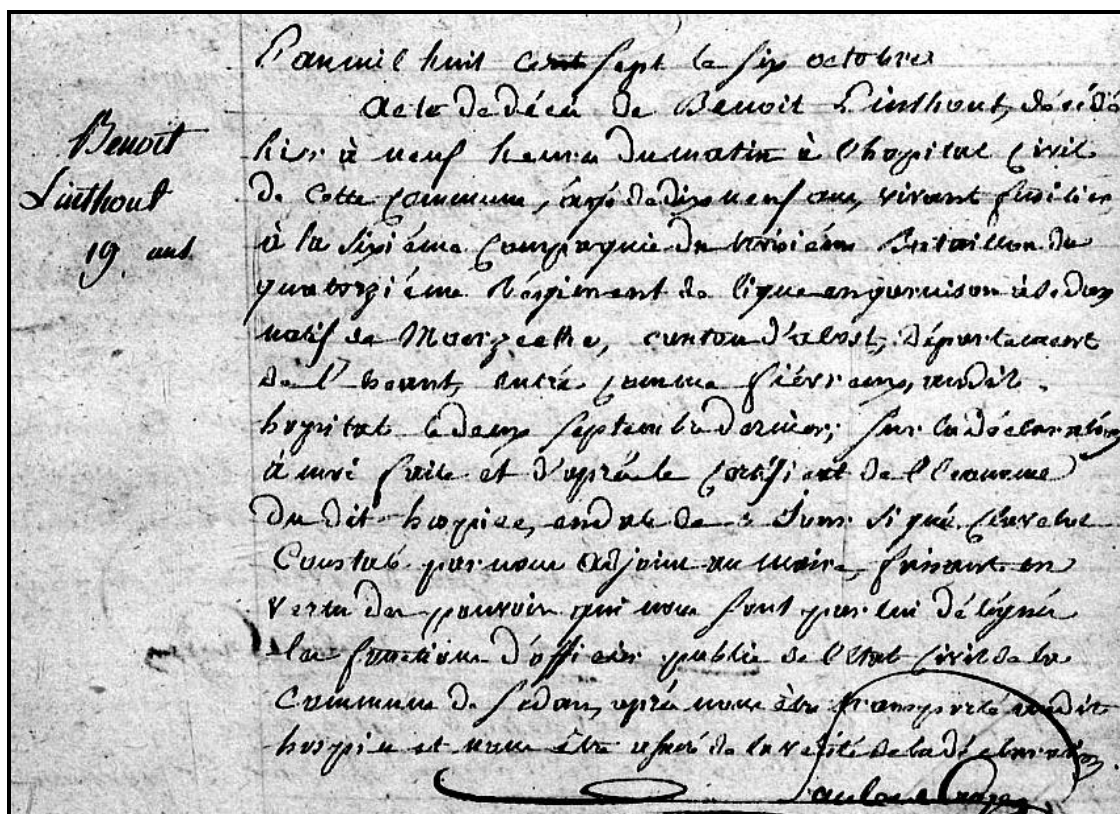 L'an mil huit cent sept le six octobre
acte de décès de Benoit Linthout, décédé
hier à neuf heures du matin à l'hopital Civil
de cette Commune, âgé de dix neuf ans, vivant fusilier
à la sixiéme Compagnie du troisiéme Bataillon du
quatorziéme Régiment de ligne en garnison à Sedan
natif de Moerzeke, canton d'alost, Département
de l'Escaut, entré comme fiévreux, audit
hopital le deux Septembre dernier; sur la déclaration
à moi faite et d'après le Certificat de l'Econome
du dit hospice, en date de ce Jour signé
Constaté par nous adjoint au maire, faisant en
vertu des pouvoirs qui nous sont par lui délégués
les fonctions d'officier public de l'état Civil de la
Commune de Sedan, après nous être transporté audit
hospice et nous être assuré de la vérité de la déclaration.
Benoit
Linthout
19. ans